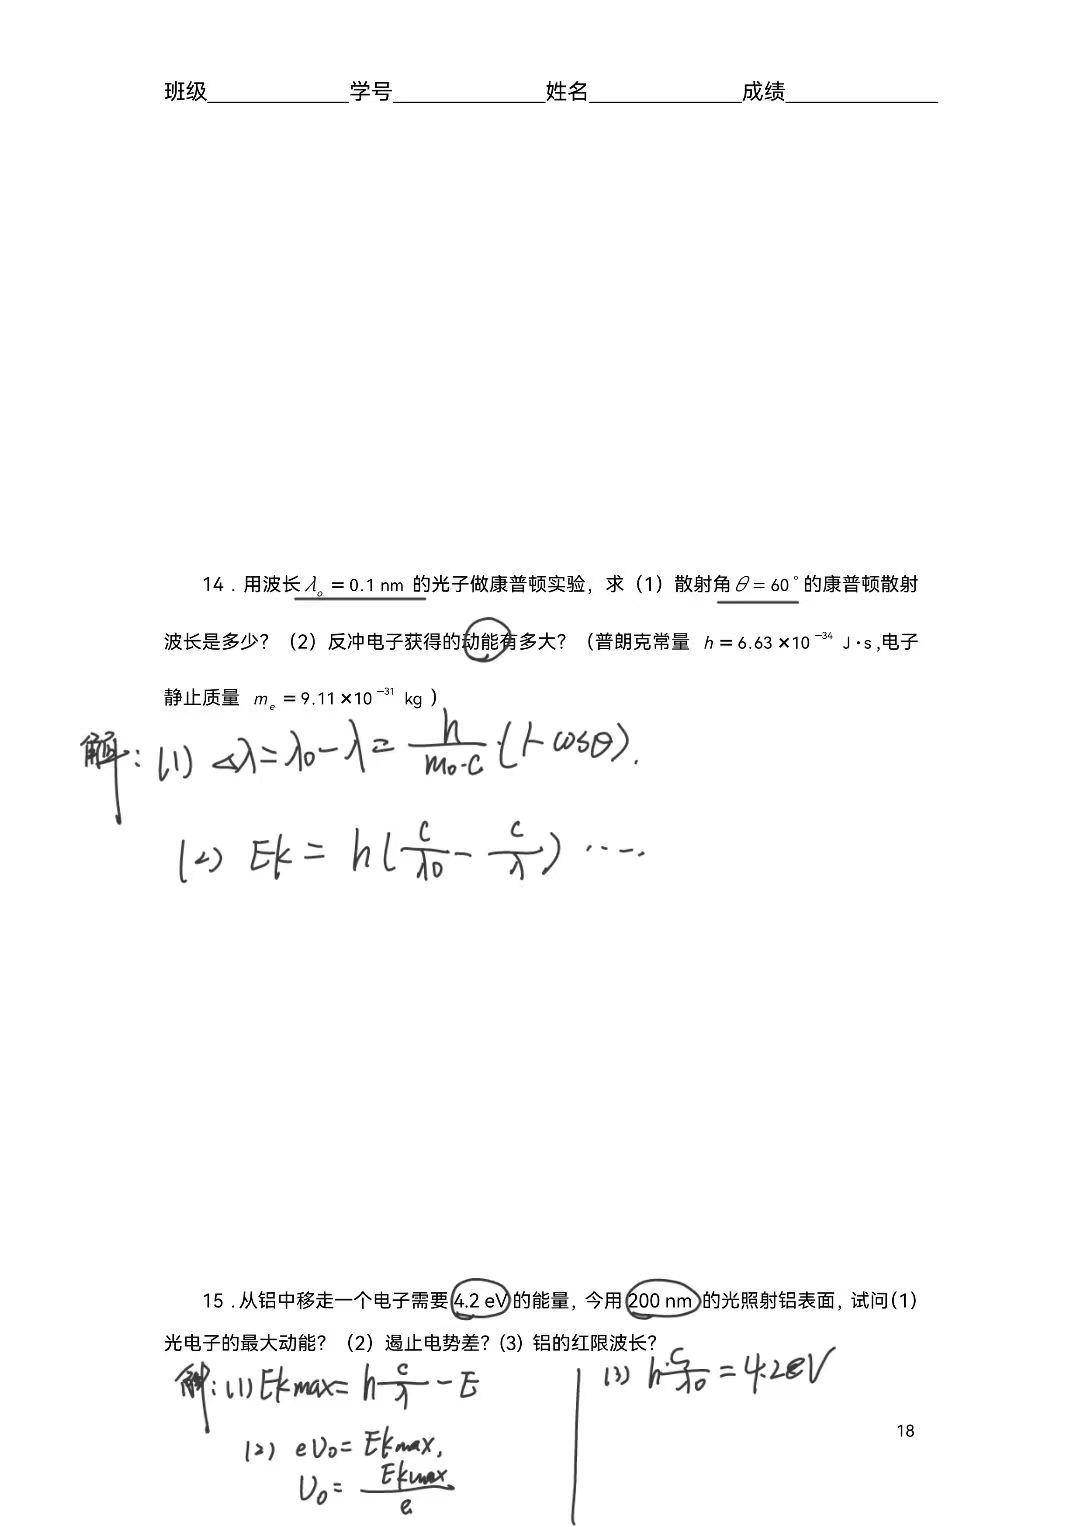 班级____________学号____________姓名____________成绩____________
14．用波长 λ₀ = 0.1 nm 的光子做康普顿实验，求（1）散射角 θ = 60° 的康普顿散射
波长是多少？（2）反冲电子获得的动能有多大？（普朗克常量 h = 6.63 ×10⁻³⁴ J·s ,电子
静止质量 mₑ = 9.11×10⁻³¹ kg ）
解：(1) Δλ = λ₀ - λ = h/(m₀·c) · (1 - cosθ).
(2) Ek = h(c/λ₀ - c/λ) ……
15．从铝中移走一个电子需要 4.2 eV 的能量，今用 200 nm 的光照射铝表面，试问(1)
光电子的最大动能？（2）遏止电势差？(3) 铝的红限波长？
解：(1) Ekmax = h c/λ - E
(2) eU₀ = Ekmax,
U₀ = Ekmax/e
(3) h·c/λ₀ = 4.2eV
18